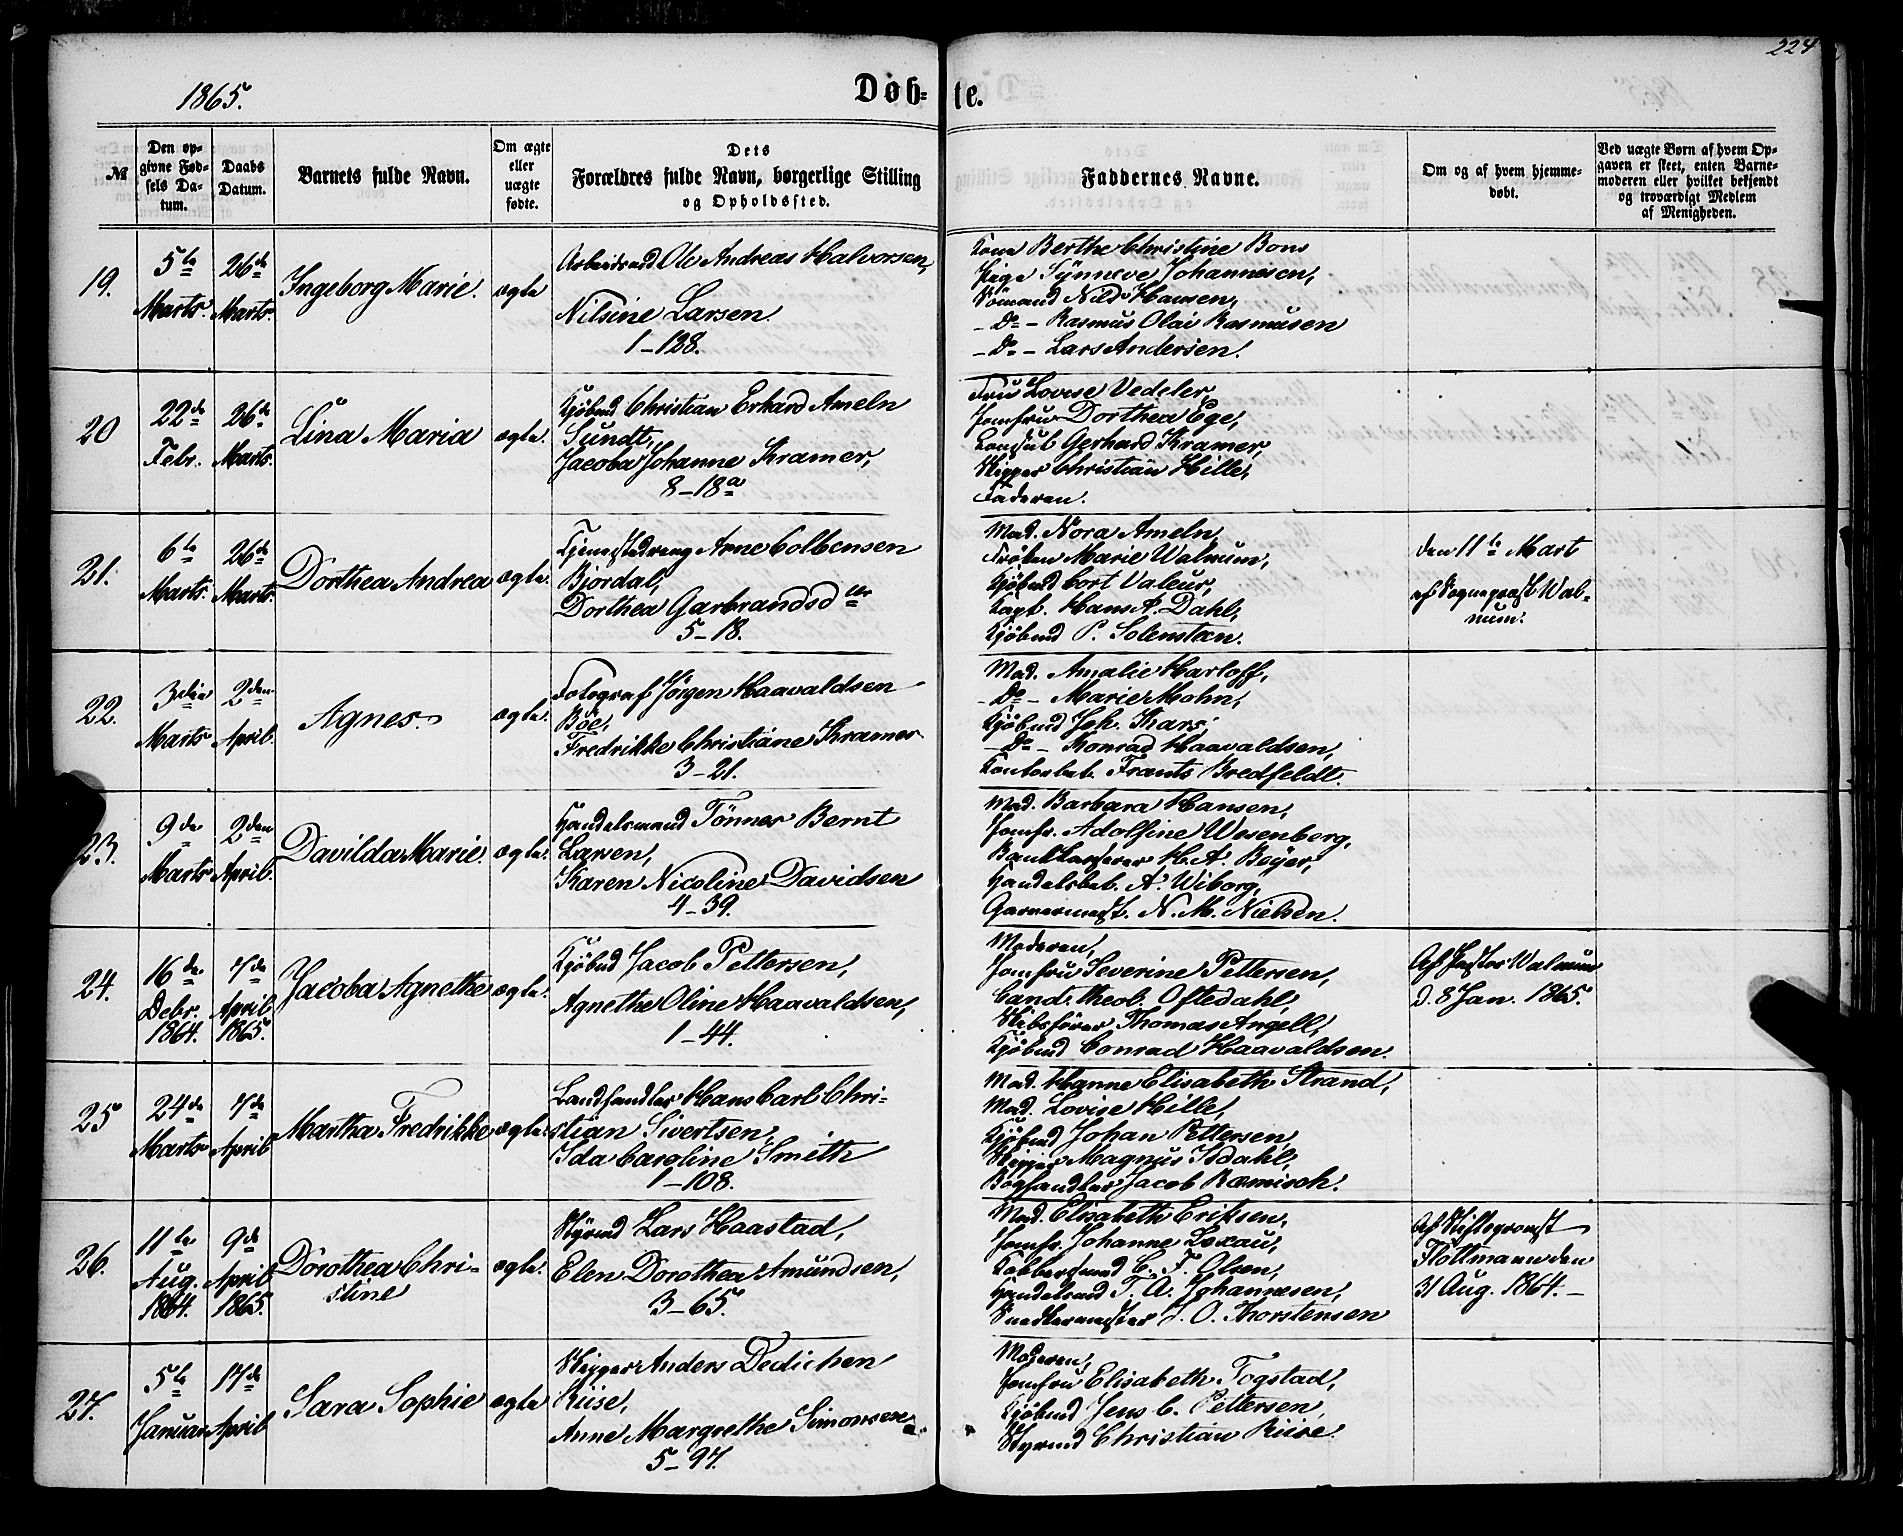 224
1865.
Døb-te.
№
Den op-
givne Fød-
sels Da-
tum.
Daabs
Datum.
Barnets fulde Navn.
Om ægte
eller
uægte
fødte.
Dets
Forældres fulde Navn, borgerlige Stilling
og Opholdssted.
Faddernes Navne.
Om og af hvem hjemme-
døbt.
Ved uægte Børn af hvem Op-
gaven er skeet, enten Barne-
moderen eller hvilket bekjendt
og troværdigt Medlem
af Menigheden.
19.
5te
Marts.
26de
Marts.
Ingeborg Marie.
ægte
Arbeidsmd Ole Andreas Halvorsen,
Nilsine Larsen
1-128.
Kone Berthe Christine Bons
Pige Synneve Johannesen,
Sömand Nils Hansen,
-Do- Rasmus Olai Rasmusen
-Do- Lars Andersen.
20
22de
Febr.
26de
Marts.
Lina Maria
ægte.
Kjöbmd Christian Erhard Ameln
Sundt,
Jacoba Johanne Kramer,
8-18a
Fru Lovise Vedeler,
Jomfru Dorthea Ege,
Consul Gerhard Kramer,
Skipper Christian Hille,
Faderen.
21.
6te
Marts.
26de
Marts.
Dorthea Andrea
ægte.
Tjenestedreng Arne Colbensen
Bjordal,
Dorthea Garbrandsdter
5-18.
Mad. Nora Ameln,
Fröken Marie Walnum,
Kjöbmd Cort Valeur,
Capt. Hans P. Dahl,
Kjöbmd P. Solensteen.
den 11te Mart
af Sognepræst Wal-
num.
22.
3die
Marts
2den
April.
Agnes.
ægte.
Fotograf Jörgen Haavaldsen
Böe,
Fredrikke Christiane Kramer
3-21.
Mad. Amalie Harloff,
-Do- Marie Mohn,
Kjöbmd Joh. Kars,
-Do- Konrad Haavaldsen,
Contorbet. Frants Bredfeldt.
23.
9de
Marts
2den
April.
Davilda Marie.
ægte.
Handelsmand Tönnes Bernt
Larsen,
Karen Nicoline Davidsen
4-39.
Mad. Barbara Hansen,
Jomfr. Adolfine Wesenberg,
Bankkasserer H. A. Beyer,
Handelsbet. A. Wiborg,
Garvermest. N. M. Nielsen.
24.
16de
Debr.
1864.
7de
April
1865.
Jacoba Agnethe
ægte.
Kjöbmd Jacob Pettersen,
Agnethe Oline Haavaldsen,
1-44.
Moderen,
Jomfru Severine Pettersen,
Cand. theol. Oftedahl,
Skibsförer Thomas Angell,
Kjöbmd Conrad Haavaldsen.
Af Pastor Walnum
d. 8 Jan. 1865.
25
24de
Marts
7de
April
Martha Fredrikke
ægte.
Landhandler Hans Carl Chri-
stian Sivertsen,
Ida Caroline Smith
1-108.
Mad. Hanne Elisabeth Strand,
Mad. Lovise Hille,
Kjöbmd Johan Pettersen,
Skipper Magnus Isdahl,
Boghandler Jacob Roemisch.
26.
11te
Aug.
1864.
9de
April
1865.
Dorothea Chri-
stine
ægte.
Styrmd Lars Haastad,
Elen Dorothea Amundsen,
3-65.
Mad. Elisabeth Eriksen,
Jomfr. Johanne Lexau,
Kobbersmed C. F. Olsen,
Handelsmd T. A. Johannesen,
Snedkermester J. O. Thorstensen
Af Stiftsprovst
Flottmann den
31 Aug. 1864.-
27.
5te
Januar
17de
April
Sara Sophie
ægte
Skipper Anders Dedichen
Riise,
Anne Margrethe Simonsen.
5-97.
Moderen,
Jomfru Elisabeth Fogstad,
Kjöbmd Jens C. Pettersen,
Styrmd Christian Riise.